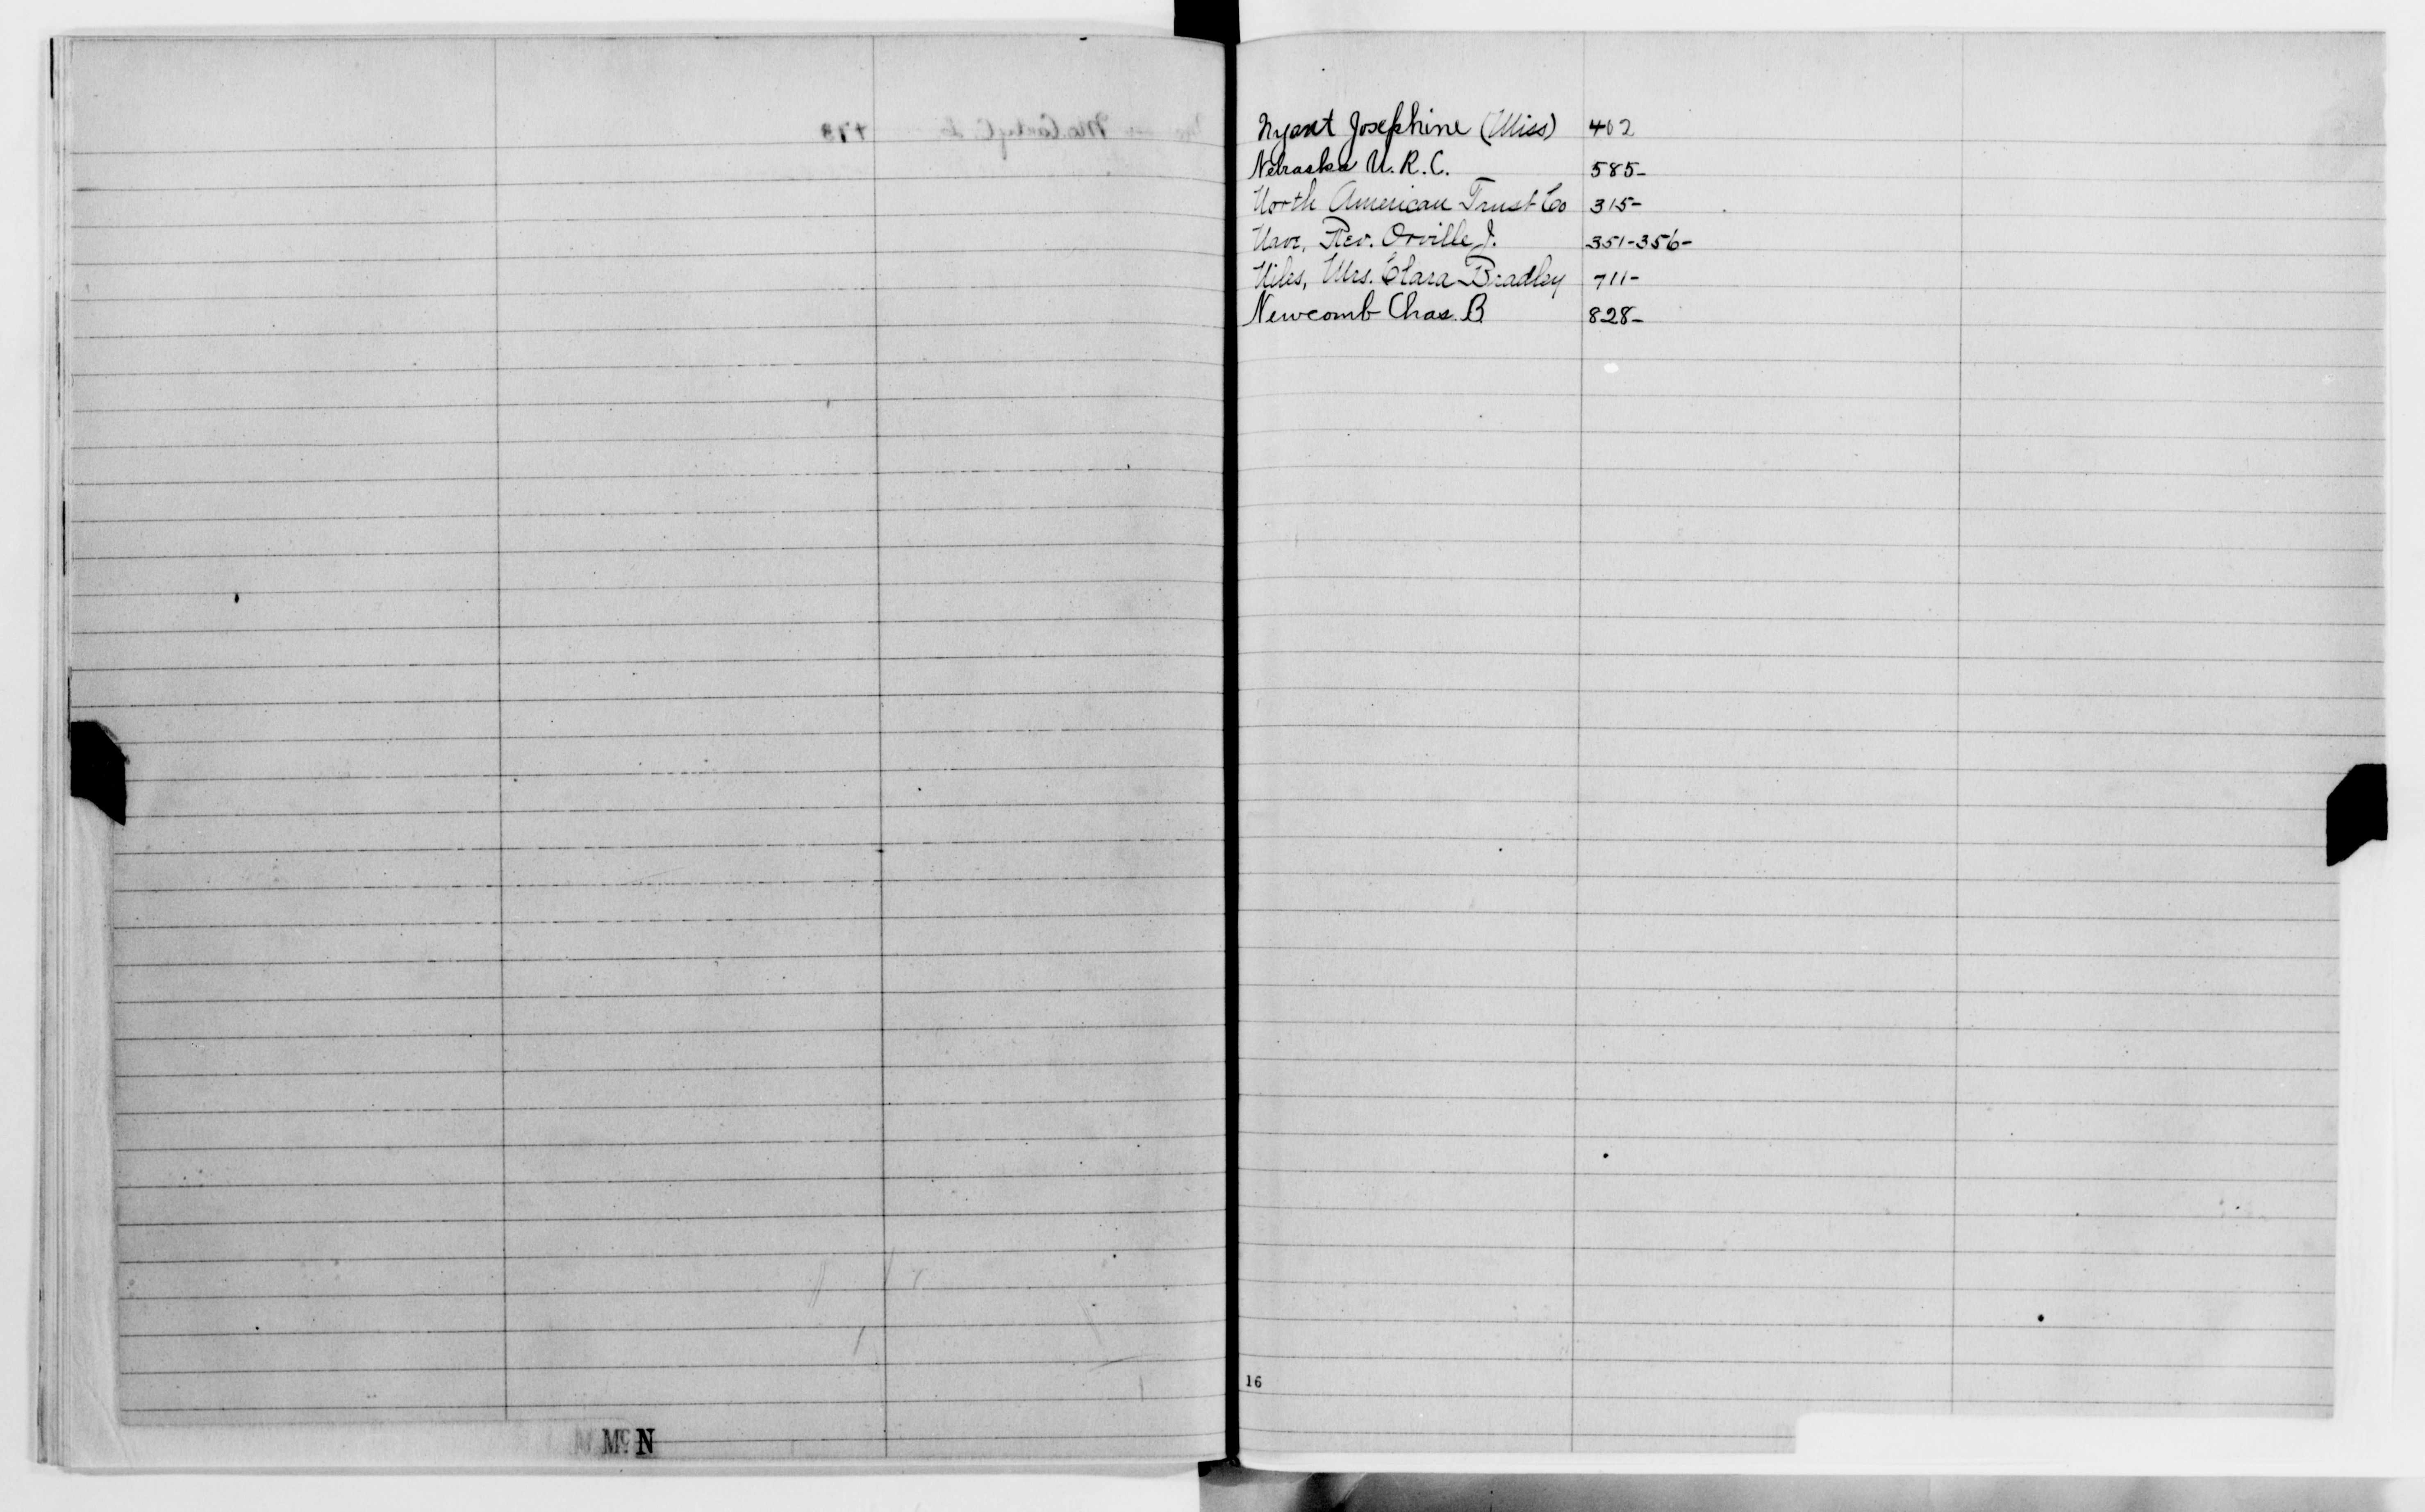 Nyant Josephine (Miss) 402
Nebraska U.R.C. 585-
North American Trust Co 315-
Nave, Rev. Orville J. 351-356-
Niles, Mrs. Clara Bradley 711-
Newcomb Chas. B. 828-
16
Mc N